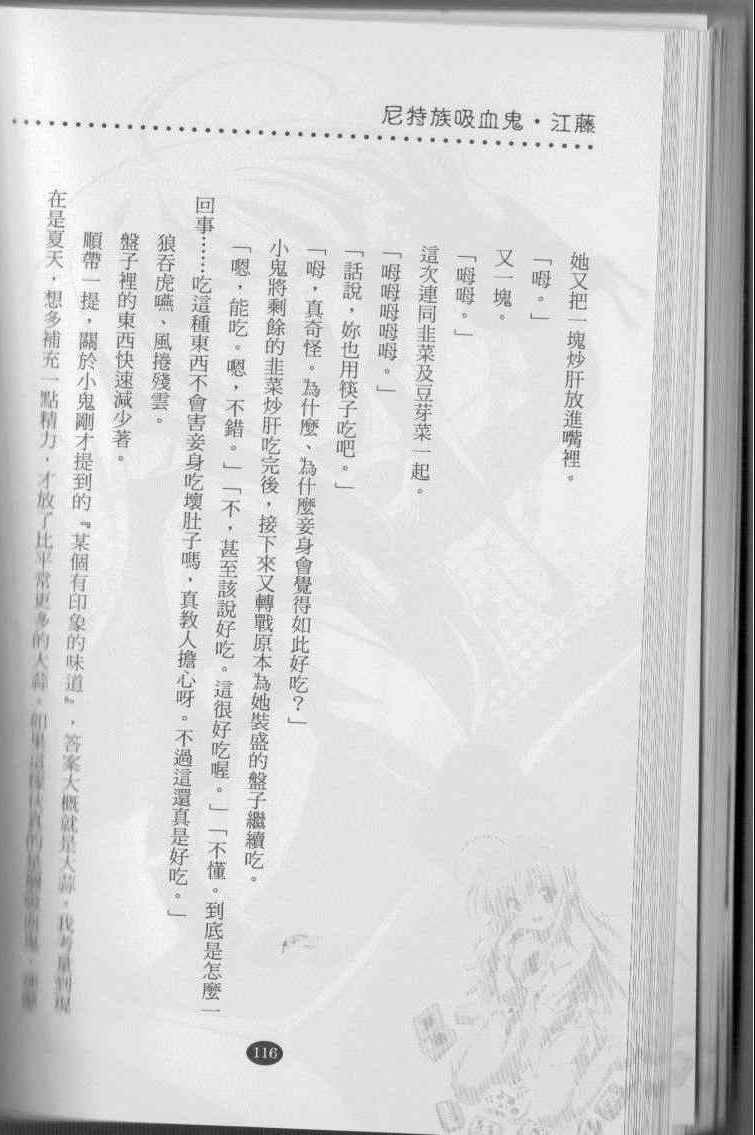 尼特族吸血鬼・江藤
她又把一塊炒肝放進嘴裡。
「呣。」
又一塊。
「呣呣。」
這次連同韭菜及豆芽菜一起。
「呣呣呣呣呣。」
「話說，妳也用筷子吃吧。」
「呣，真奇怪。為什麼、為什麼妾身會覺得如此好吃？」
小鬼將剩餘的韭菜炒肝吃完後，接下來又轉戰原本為她裝盛的盤子繼續吃。
「嗯，能吃。嗯，不錯。」「不，甚至該說好吃。這很好吃喔。」「不懂。到底是怎麼一
回事……吃這種東西不會害妾身吃壞肚子嗎，真教人擔心呀。不過這還真是好吃。」
狼吞虎嚥、風捲殘雲。
盤子裡的東西快速減少著。
順帶一提，關於小鬼剛才提到的『某個有印象的味道』，答案大概就是大蒜。我考量到現
在是夏天，想多補充一點精力，才放了比平常更多的大蒜。如果這傢伙真的是
116